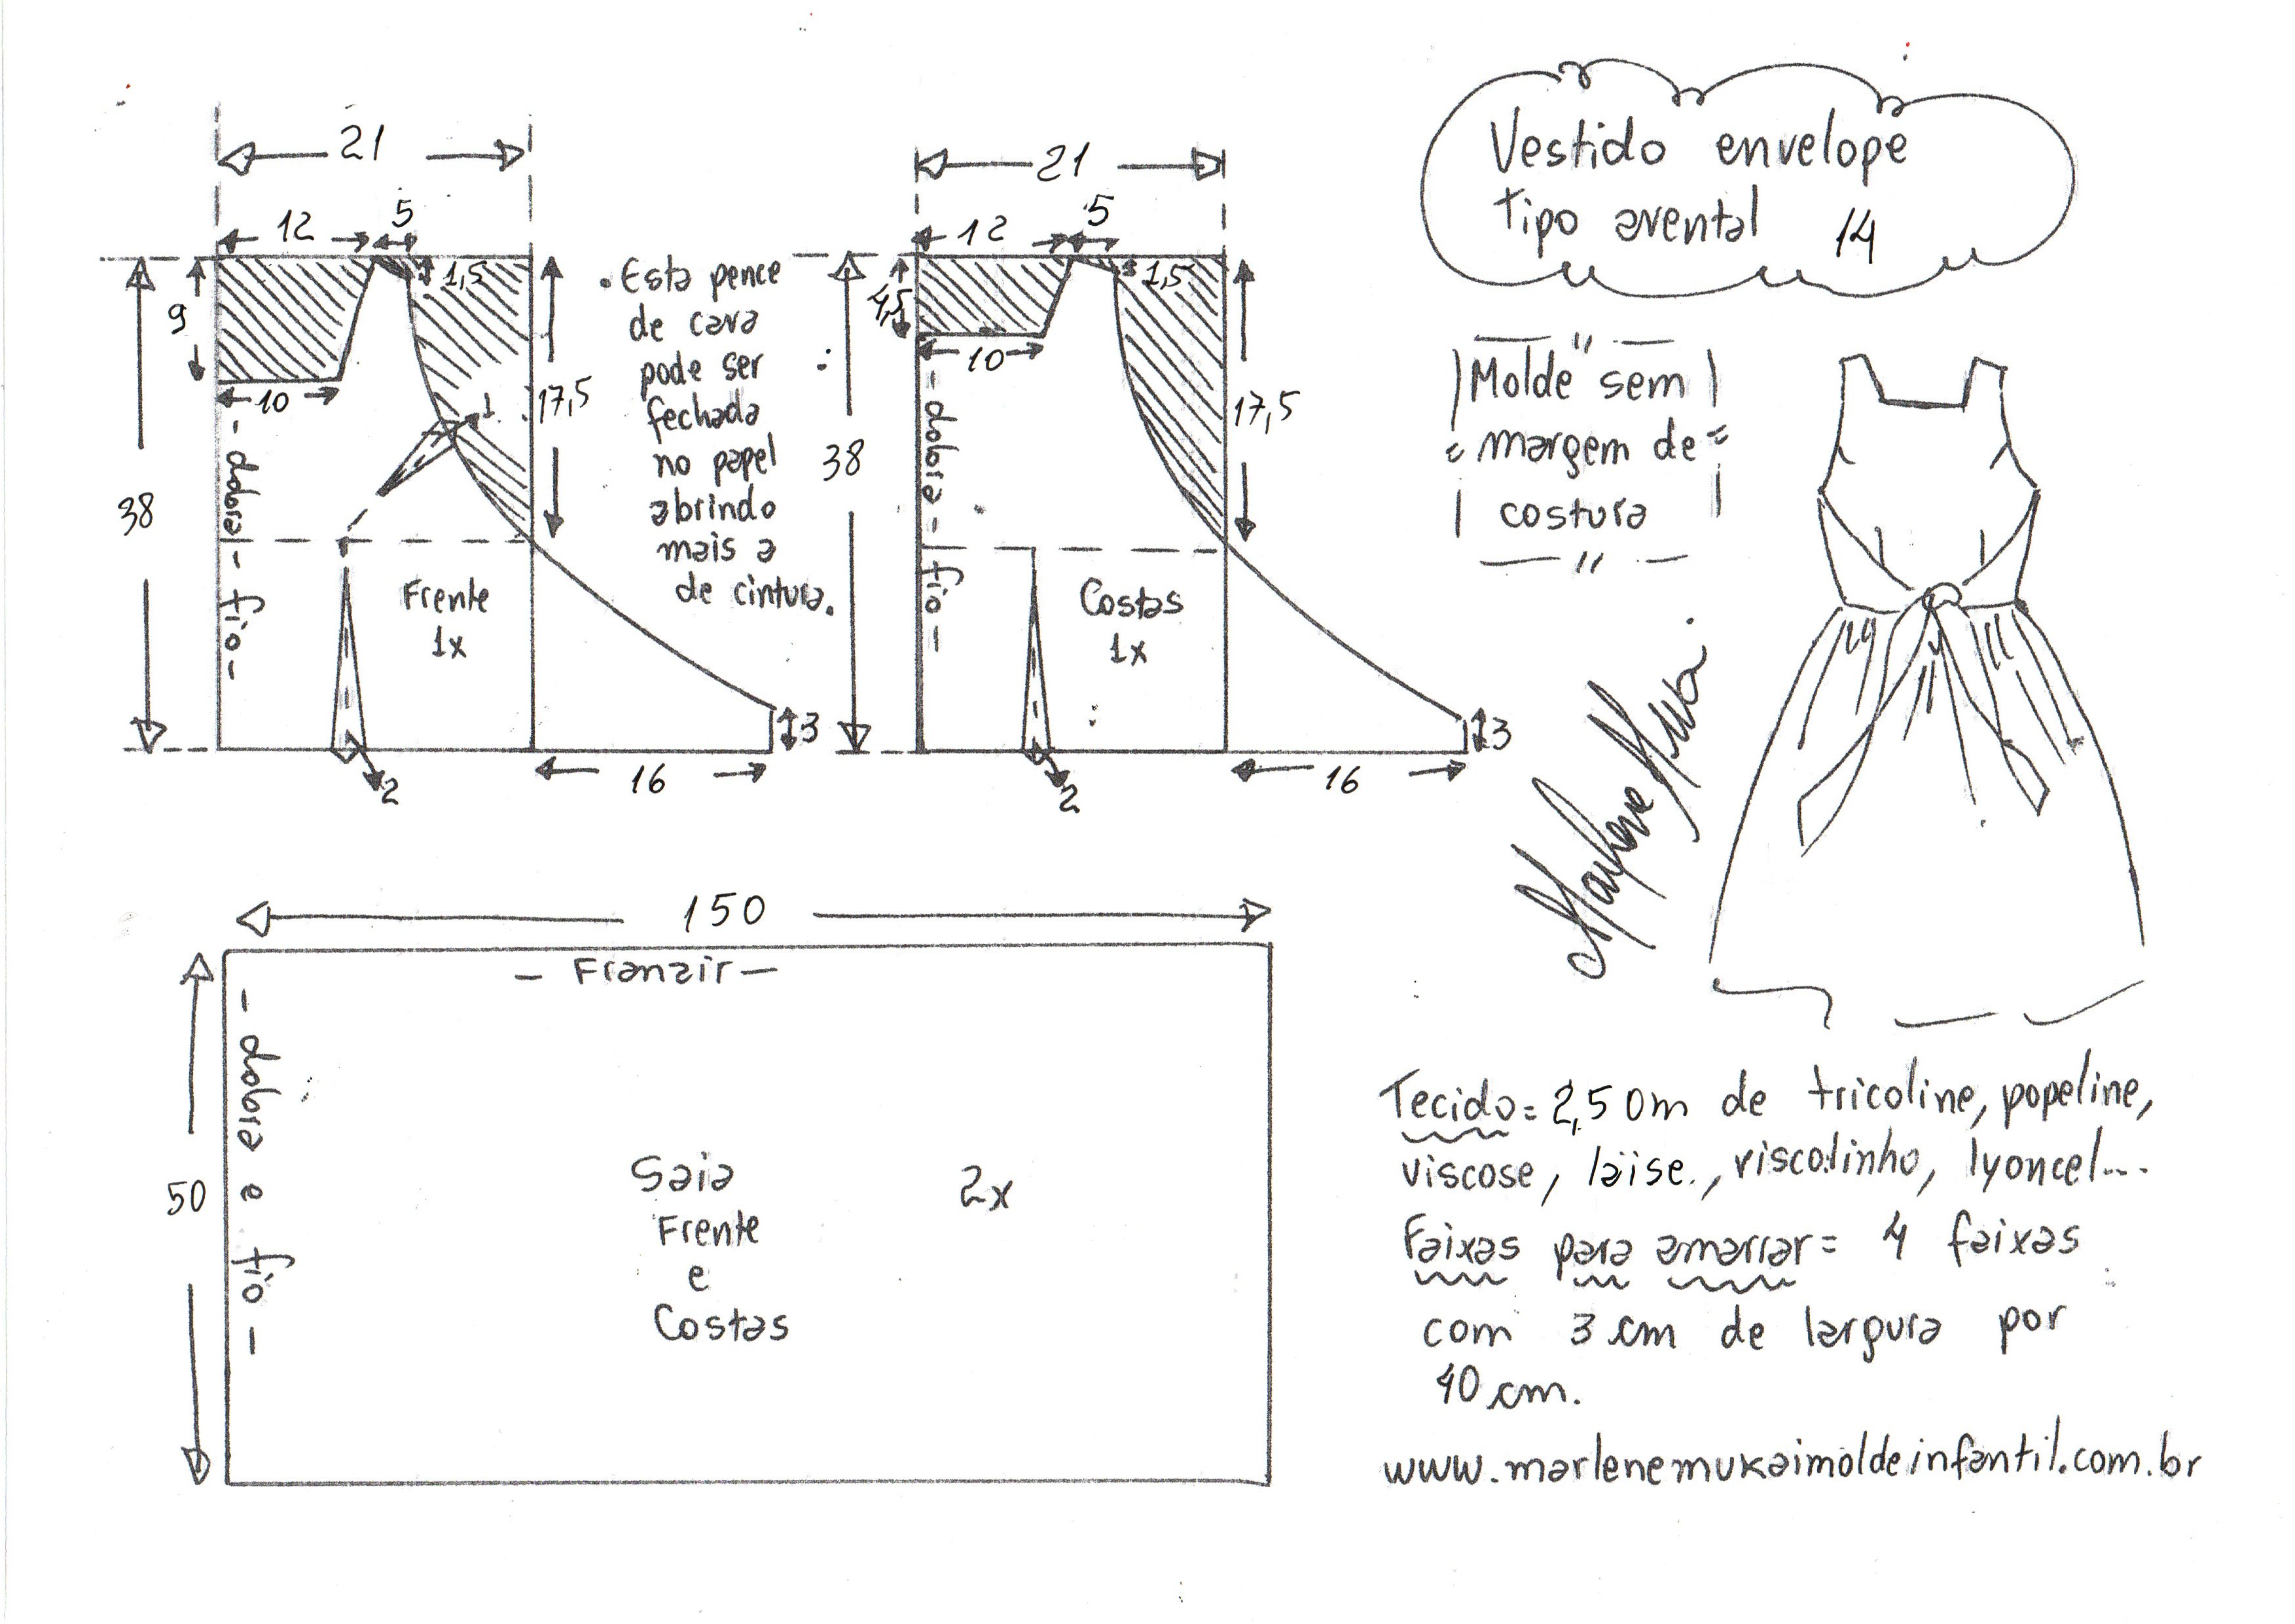 Vestido envelope
Tipo avental 14
21
12
5
1,5
9
10
17,5
38
- dobra - fio -
Frente
1x
2
16
3
. Esta pence
de cava
pode ser
fechada
no papel
abrindo
mais a
de cintura.
21
12
5
1,5
4,5
10
17,5
38
- dobra - fio -
Costas
1x
2
16
3
Molde sem
margem de
costura
150
- Franzir -
50
- dobra e fio -
Saia
Frente
e
Costas
2x
Tecido = 2,50m de tricoline, popeline,
viscose, laise., viscolinho, lyoncel...
Faixas para amarrar = 4 faixas
com 3 cm de largura por
40 cm.
www.marlenemukaimoldeinfantil.com.br